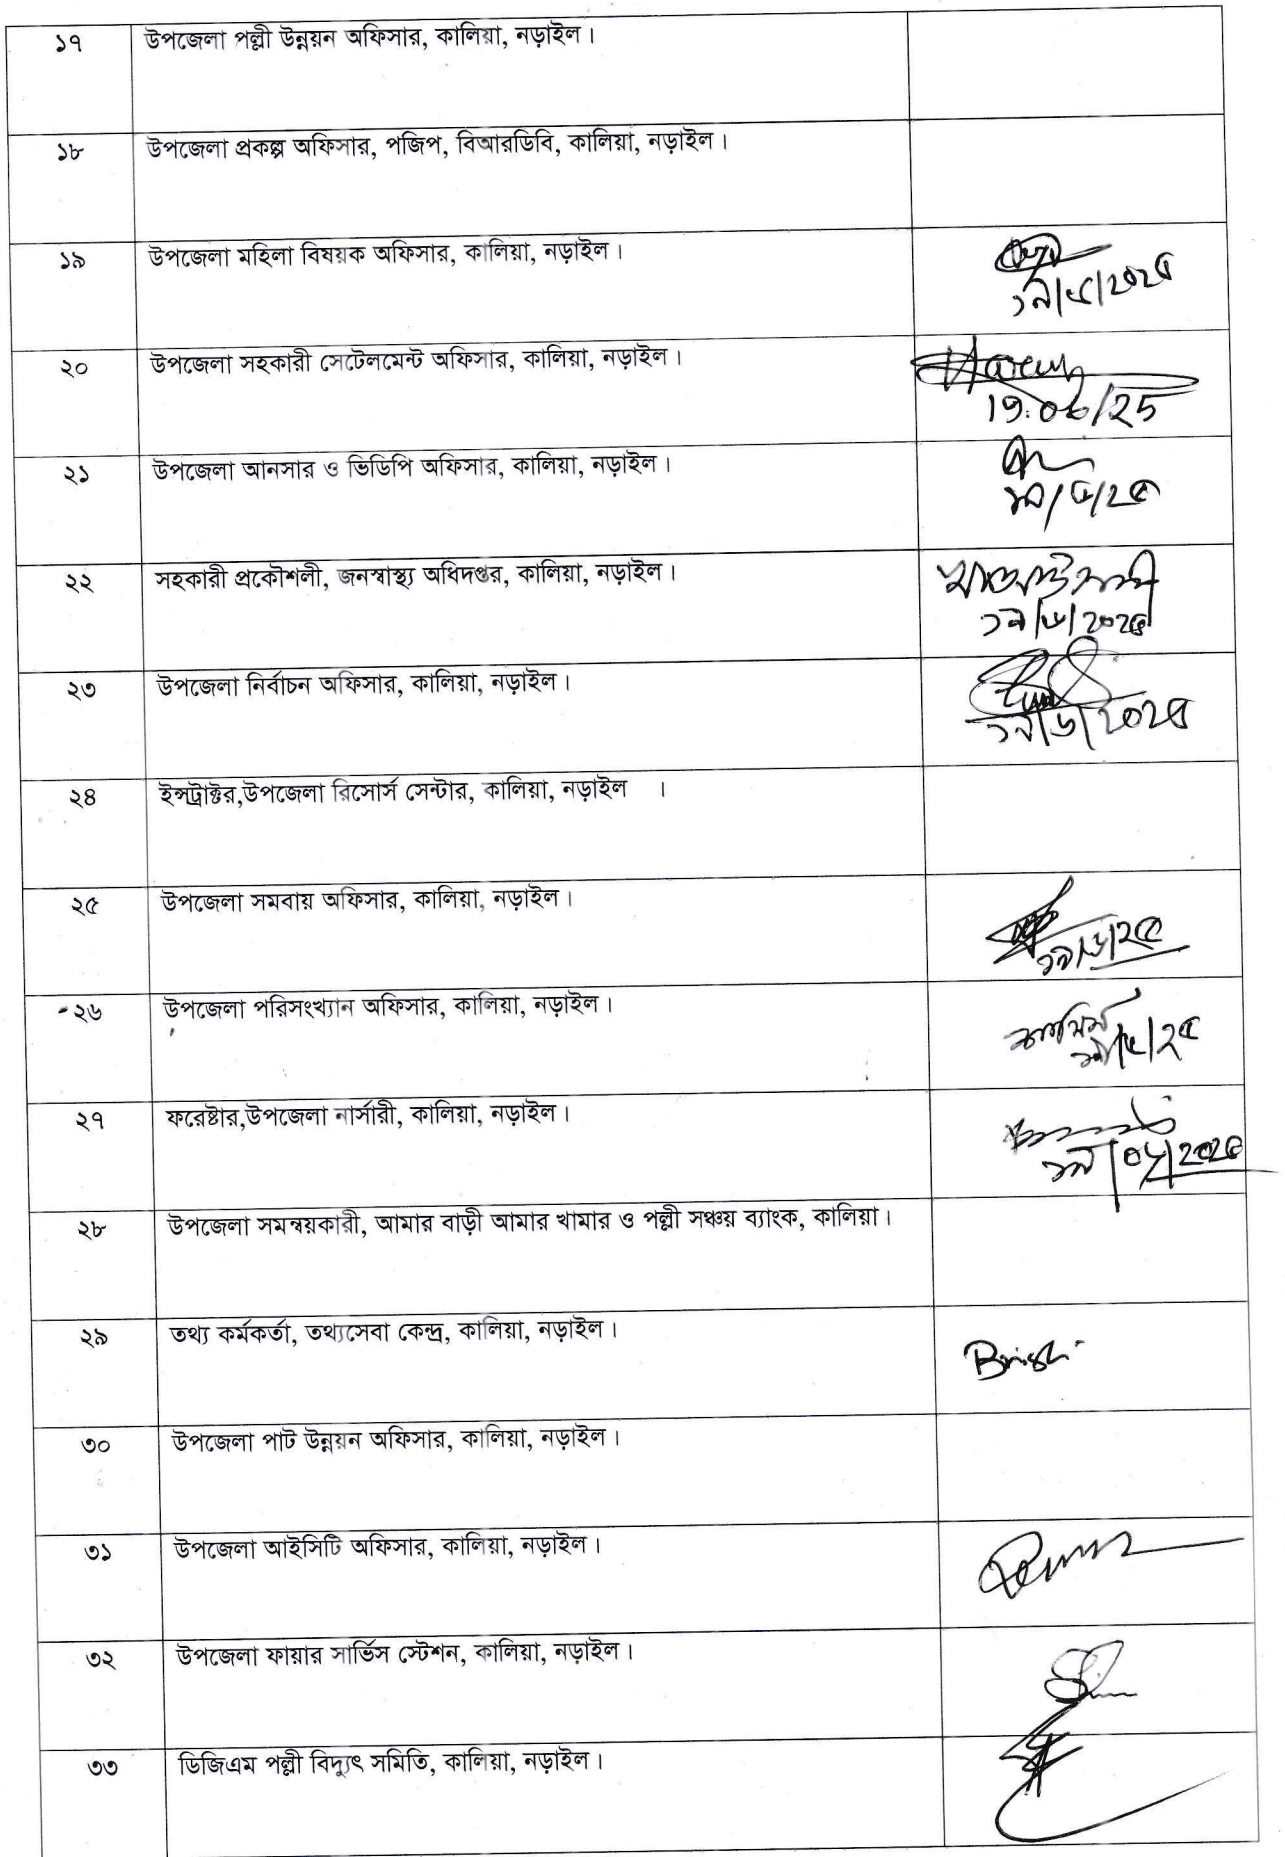 ১৭ উপজেলা পল্লী উন্নয়ন অফিসার, কালিয়া, নড়াইল।
১৮ উপজেলা প্রকল্প অফিসার, পজিপ, বিআরডিবি, কালিয়া, নড়াইল।
১৯ উপজেলা মহিলা বিষয়ক অফিসার, কালিয়া, নড়াইল।
১৯/৬/২০২৫
২০ উপজেলা সহকারী সেটেলমেন্ট অফিসার, কালিয়া, নড়াইল।
19.06/25
২১ উপজেলা আনসার ও ভিডিপি অফিসার, কালিয়া, নড়াইল।
১৯/৬/২৫
২২ সহকারী প্রকৌশলী, জনস্বাস্থ্য অধিদপ্তর, কালিয়া, নড়াইল।
১৯/৬/২০২৫
২৩ উপজেলা নির্বাচন অফিসার, কালিয়া, নড়াইল।
১৯/৬/২০২৫
২৪ ইন্সট্রাক্টর,উপজেলা রিসোর্স সেন্টার, কালিয়া, নড়াইল ।
২৫ উপজেলা সমবায় অফিসার, কালিয়া, নড়াইল।
১৯/৬/২৫
২৬ উপজেলা পরিসংখ্যান অফিসার, কালিয়া, নড়াইল।
১৯/৬/২৫
২৭ ফরেষ্টার,উপজেলা নার্সারী, কালিয়া, নড়াইল।
১৯/০৬/২০২৫
২৮ উপজেলা সমন্বয়কারী, আমার বাড়ী আমার খামার ও পল্লী সঞ্চয় ব্যাংক, কালিয়া।
২৯ তথ্য কর্মকর্তা, তথ্যসেবা কেন্দ্র, কালিয়া, নড়াইল।
৩০ উপজেলা পাট উন্নয়ন অফিসার, কালিয়া, নড়াইল।
৩১ উপজেলা আইসিটি অফিসার, কালিয়া, নড়াইল।
৩২ উপজেলা ফায়ার সার্ভিস স্টেশন, কালিয়া, নড়াইল।
৩৩ ডিজিএম পল্লী বিদ্যুৎ সমিতি, কালিয়া, নড়াইল।